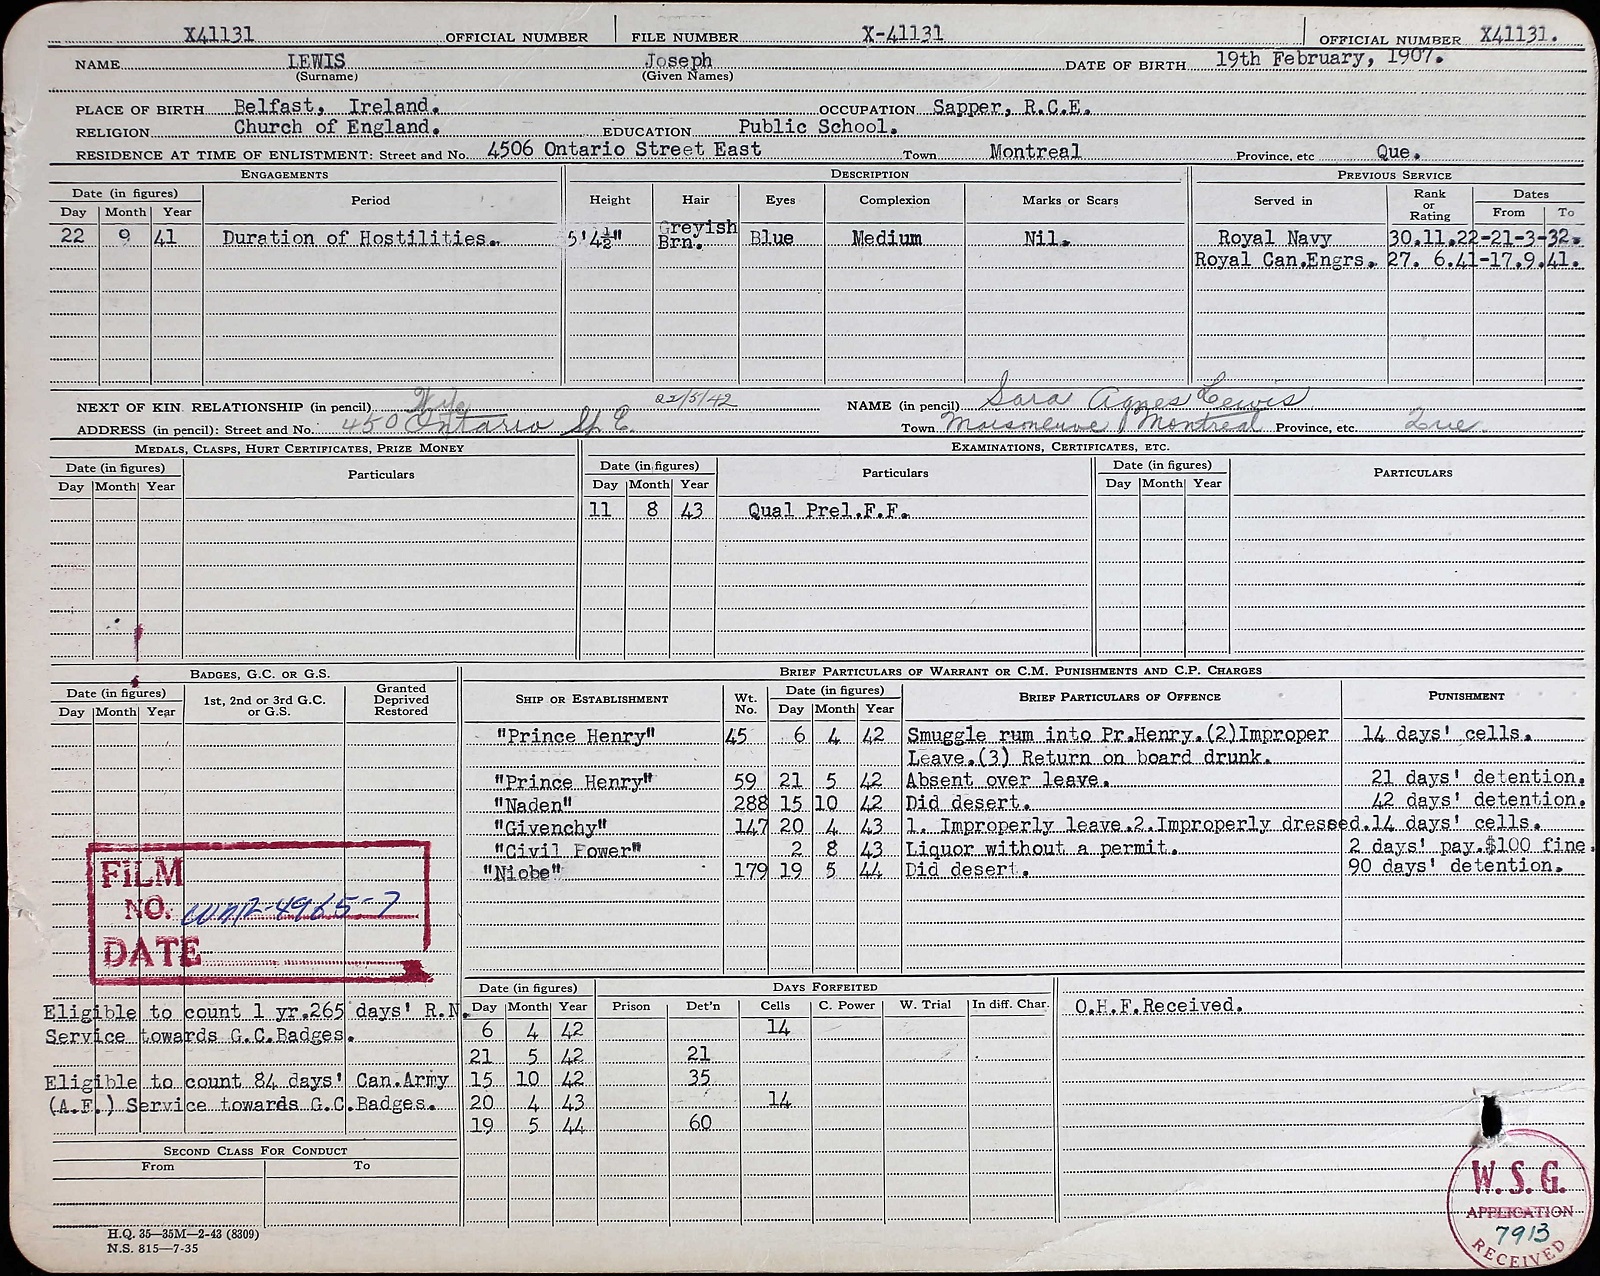 X41131 OFFICIAL NUMBER FILE NUMBER X-41131 OFFICIAL NUMBER X41131.
NAME LEWIS Joseph DATE OF BIRTH 19th February, 1907.
(Surname) (Given Names)
PLACE OF BIRTH Belfast, Ireland. OCCUPATION Sapper, R.C.E.
RELIGION Church of England. EDUCATION Public School.
RESIDENCE AT TIME OF ENLISTMENT: Street and No. 4506 Ontario Street East Town Montreal Province, etc Que.
ENGAGEMENTS DESCRIPTION PREVIOUS SERVICE
Date (in figures) Period Height Hair Eyes Complexion Marks or Scars Served in Rank or Rating Dates
Day Month Year From To
22 9 41 Duration of Hostilities. 5'4½" Greyish Brn. Blue Medium Nil. Royal Navy 30.11.22-21-3-32.
Royal Can.Engrs. 27. 6.41-17.9.41.
NEXT OF KIN. RELATIONSHIP (in pencil) Wife 22/5/42 NAME (in pencil) Sara Agnes Lewis
ADDRESS (in pencil): Street and No. 450 Ontario St. E. Town Maisoneuve Montreal Province, etc. Que.
MEDALS, CLASPS, HURT CERTIFICATES, PRIZE MONEY EXAMINATIONS, CERTIFICATES, ETC.
Date (in figures) Particulars Date (in figures) Particulars Date (in figures) PARTICULARS
Day Month Year Day Month Year Day Month Year
11 8 43 Qual Prel.F.F.
BADGES, G.C. OR G.S. BRIEF PARTICULARS OF WARRANT OR C.M. PUNISHMENTS AND C.P. CHARGES
Date (in figures) 1st, 2nd or 3rd G.C. or G.S. Granted Deprived Restored SHIP OR ESTABLISHMENT Wt. No. Date (in figures) BRIEF PARTICULARS OF OFFENCE PUNISHMENT
Day Month Year Day Month Year
"Prince Henry" 45 6 4 42 Smuggle rum into Pr.Henry.(2)Improper 14 days' cells.
Leave.(3) Return on board drunk.
"Prince Henry" 59 21 5 42 Absent over leave. 21 days' detention.
"Naden" 288 15 10 42 Did desert. 42 days' detention.
"Givenchy" 147 20 4 43 1. Improperly leave.2.Improperly dressed. 14 days' cells.
"Civil Power" 2 8 43 Liquor without a permit. 2 days' pay.$100 fine.
"Niobe" 179 19 5 44 Did desert. 90 days' detention.
FILM
NO. WNR-4965-7
DATE
Eligible to count 1 yr.265 days' R.N.
Service towards G.C.Badges.
Eligible to count 84 days' Can.Army
(A.F.) Service towards G.C.Badges.
SECOND CLASS FOR CONDUCT
From To
Date (in figures) DAYS FORFEITED
Day Month Year Prison Det'n Cells C. Power W. Trial In diff. Char.
6 4 42 14
21 5 42 21
15 10 42 35
20 4 43 14
19 5 44 60
O.H.F.Received.
W.S.G.
APPLICATION
7913
RECEIVED
H.Q. 35—35M—2-43 (8309)
N.S. 815—7-35